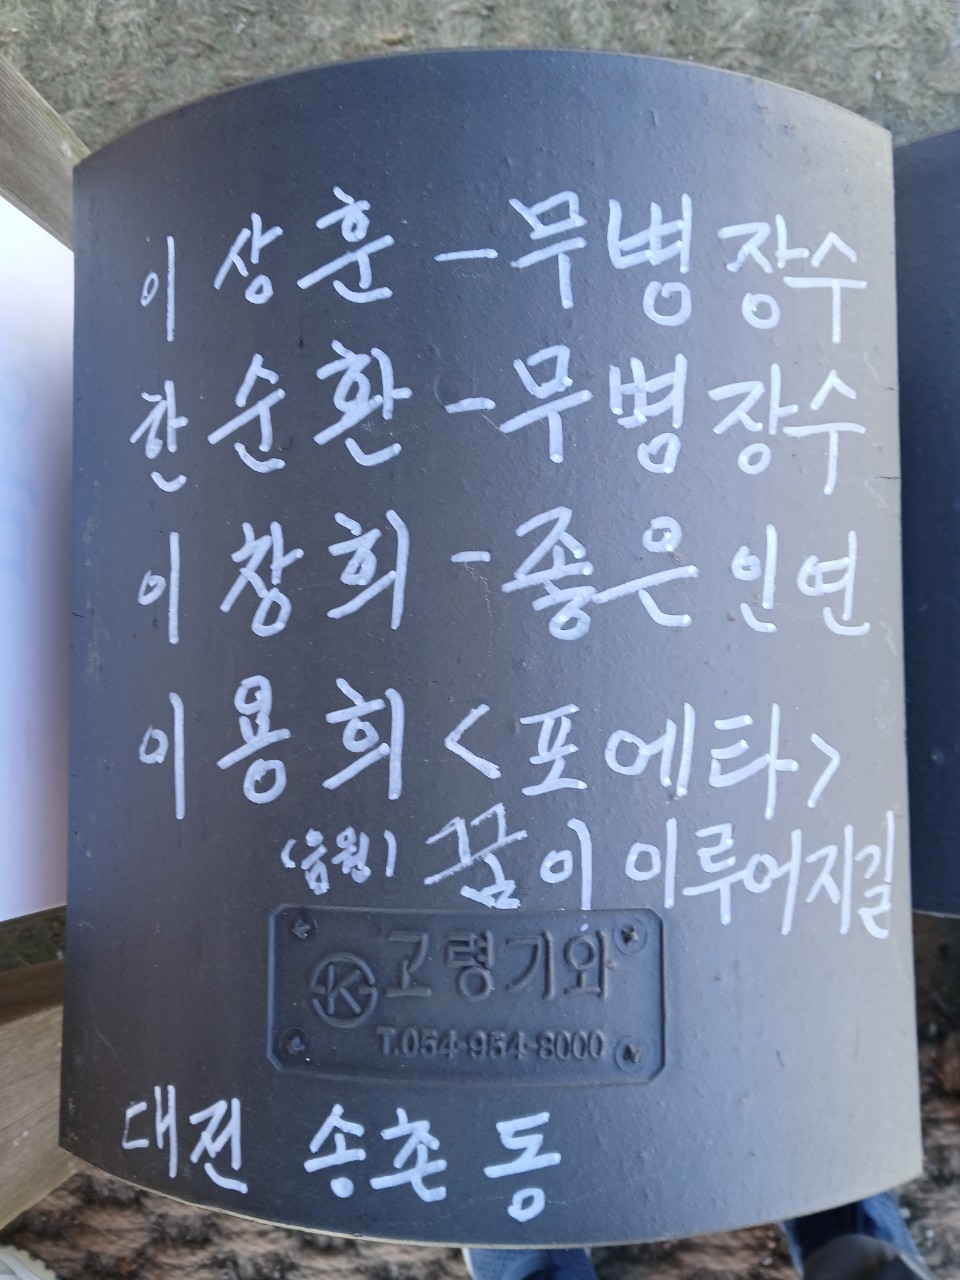 이상훈 - 무병장수
한순환 - 무병장수
이창희 - 좋은인연
이용희 <포에타>
(음원) 꿈이 이루어지길
K 고령기와
T.054-954-8000
대전 송촌동